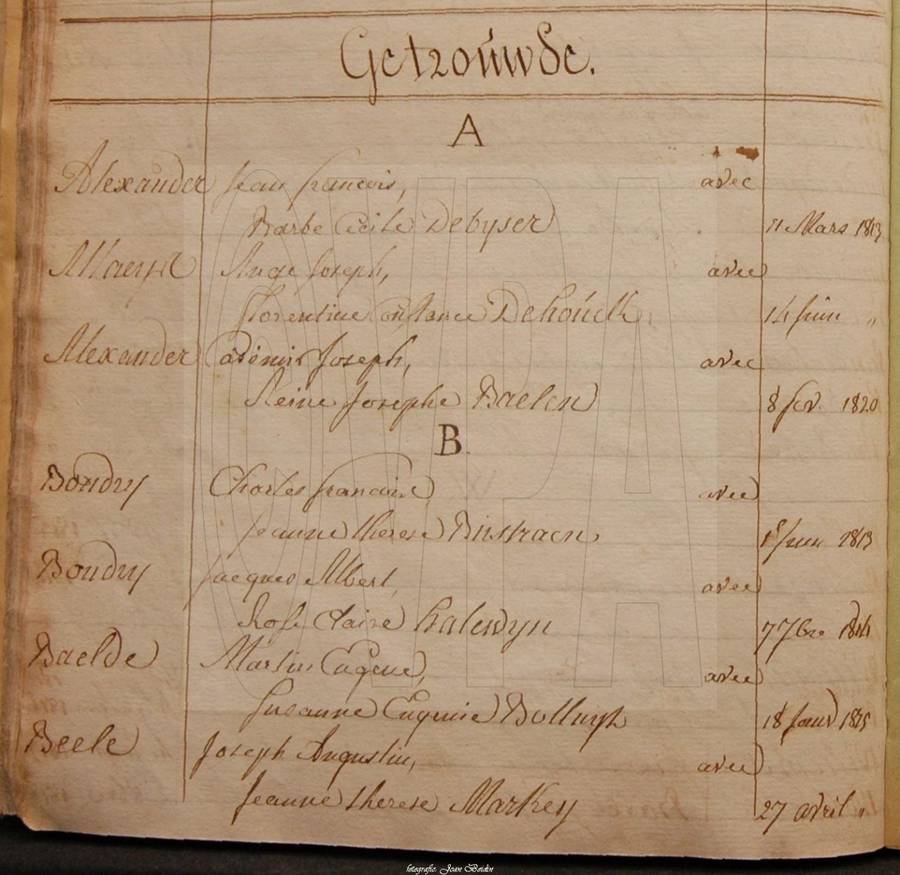 Getrouwde.
A
Alexander Jean francois, avec
Barbe Cécile Debyser 11 Mars 1813
Allaeyst Ange Joseph, avec
florentine Constance Dehouck, 14 Juin "
Alexander Casimir Joseph, avec
Reine Josephe Baelen 8 fev. 1820
B.
Boudry Charles francois avec
Jeanne therese 1 Juin 1813
Boudry Jacques Albert, avec
Rose Claire halewyn 7 7bre 1814
Baelde Martin Eugene, avec
Susanne Eugenie 18 Janv 1815
Beele Joseph Augustin, avec
Jeanne therese Markey 27 avril "
fotografie: Joan Boidin